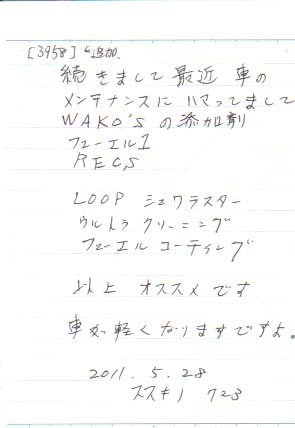 [3958] に追加.
続きまして 最近 車の
メンテナンスに ハマってまして
WAKO'S の添加剤
フューエル1
RECS
LOOP シュワラスター
ウルトラ クリーニング
フューエル コーティング
以上 オススメ です
車が軽くなりますですよ。
2011. 5. 28
ススキノ 723